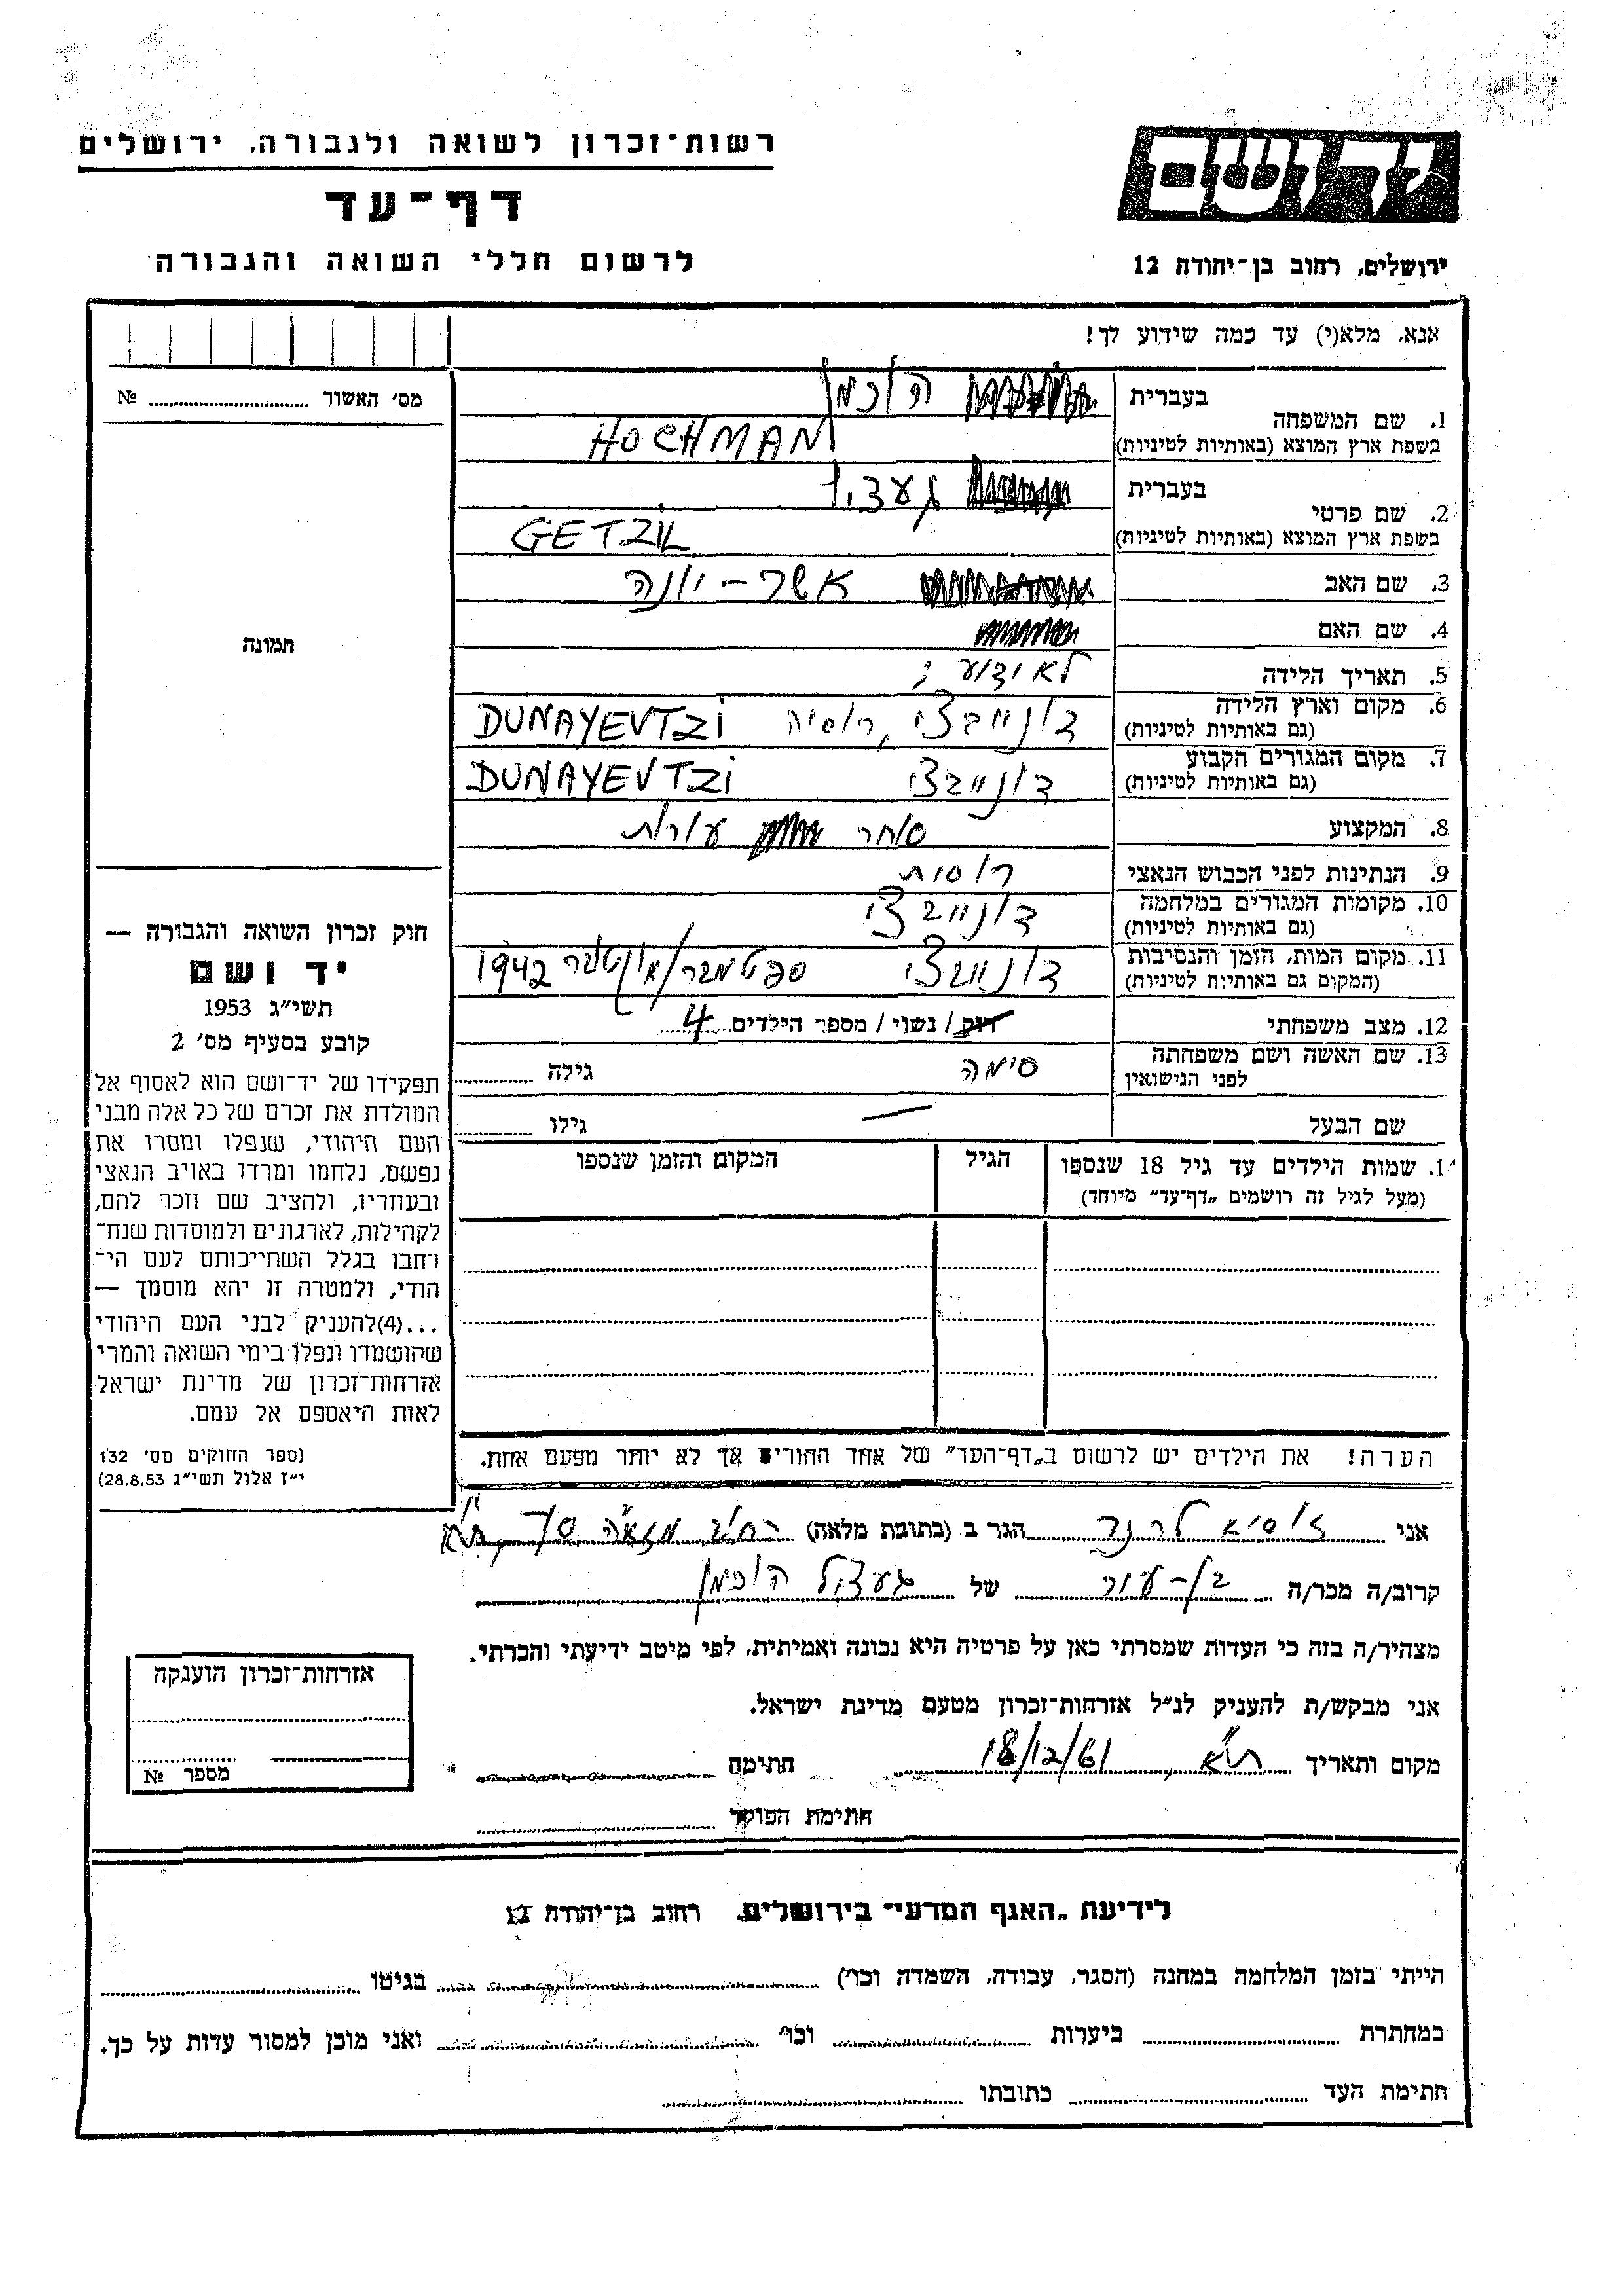 רשות־זכרון לשואה ולגבורה, ירושלים
דף־עד
לרשום חללי השואה והגבורה
יד ושם
ירושלים, רחוב בן־יהודה 12
אנא, מלא(י) עד כמה שידוע לך!
מס׳ האשור № ........
תמונה
1. שם המשפחה
בעברית הוכמן
בשפת ארץ המוצא (באותיות לטיניות) HOCHMAN
2. שם פרטי
בעברית געציל
בשפת ארץ המוצא (באותיות לטיניות) GETZIL
3. שם האב אשר - יונה
4. שם האם
5. תאריך הלידה לא ידוע ;
6. מקום וארץ הלידה (גם באותיות לטיניות) דונייבצי, רוסיה DUNAYEVTZI
7. מקום המגורים הקבוע (גם באותיות לטיניות) דונייבצי DUNAYEVTZI
8. המקצוע סוחר עורות
9. הנתינות לפני הכבוש הנאצי רוסית
10. מקומות המגורים במלחמה (גם באותיות לטיניות) דונייבצי
11. מקום המות, הזמן והנסיבות (המקום גם באותיות לטיניות) דונייבצי ספטמבר/אוקטובר 1942
12. מצב משפחתי רוק / נשוי / מספר הילדים 4
13. שם האשה ושם משפחתה לפני הנישואין סימה גילה ........
שם הבעל — גילו ........
1. שמות הילדים עד גיל 18 שנספו
(מעל לגיל זה רושמים „דף־עד” מיוחד)
הגיל
המקום והזמן שנספו
חוק זכרון השואה והגבורה —
יד ושם
תשי״ג 1953
קובע בסעיף מס׳ 2
תפקידו של יד־ושם הוא לאסוף אל
המולדת את זכרם של כל אלה מבני
העם היהודי, שנפלו ומסרו את
נפשם, נלחמו ומרדו באויב הנאצי
ובעוזריו, ולהציב שם וזכר להם,
לקהילות, לארגונים ולמוסדות שנח־
רבו בגלל השתייכותם לעם הי־
הודי, ולמטרה זו יהא מוסמך —
...(4)להעניק לבני העם היהודי
שהושמדו ונפלו בימי השואה והמרי
אזרחות־זכרון של מדינת ישראל
לאות היאספם אל עמם.
(ספר החוקים מס׳ 132
י״ז אלול תשי״ג 28.8.53)
הערה! את הילדים יש לרשום ב„דף־העד” של אחד ההורים אך לא יותר מפעם אחת.
אני זוסיא לרנר הגר ב (כתובת מלאה) רחוב מזא״ה 57, ת״א
קרוב/ה מכר/ה בן-עיר של געציל הוכמן
מצהיר/ה בזה כי העדות שמסרתי כאן על פרטיה היא נכונה ואמיתית, לפי מיטב ידיעתי והכרתי.
אני מבקש/ת להעניק לנ״ל אזרחות־זכרון מטעם מדינת ישראל.
מקום ותאריך ת״א, 18/12/61 חתימה ........
חתימת הפוקד ........
אזרחות־זכרון הוענקה
מספר №
לידיעת „האגף המדעי” בירושלים, רחוב בן־יהודה 12
הייתי בזמן המלחמה במחנה (הסגר, עבודה, השמדה וכו׳) ........ בגיטו ........
במחתרת ........ ביערות ........ וכו׳ ........ ואני מוכן למסור עדות על כך.
חתימת העד ........ כתובתו ........